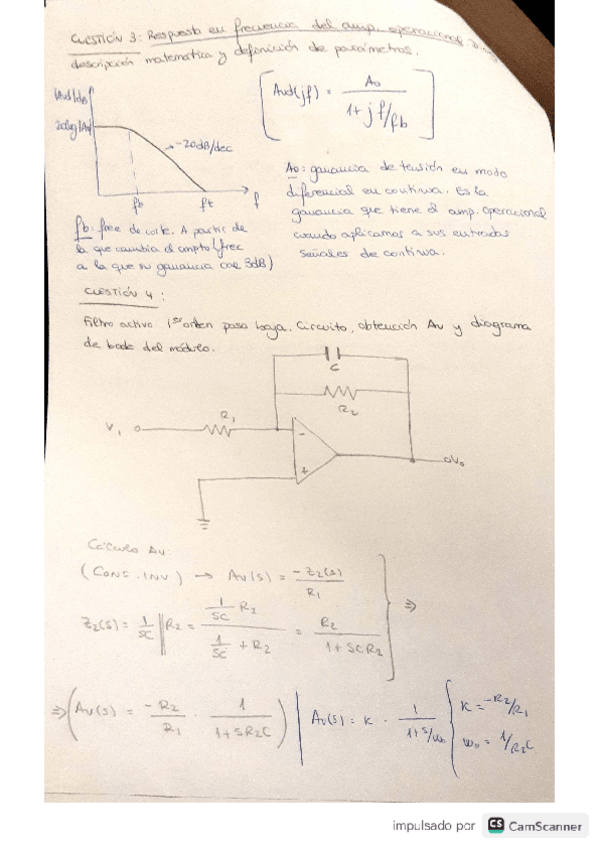 CUESTIÓN 3: Respuesta en frecuencia del amp. operacional.
descripción matemática y definición de parámetros.
|Avd|db
20log|Ao|
-20dB/dec
fb
ft
f
Avd(jf) = Ao / 1+jf/fb
Ao: ganancia de tensión en modo
diferencial en continua. Es la
ganancia que tiene el amp. operacional
cuando aplicamos a sus entradas
señales de continua.
fb: frec de corte. A partir de
la que cambia el compto (frec
a la que su ganancia cae 3dB)
CUESTIÓN 4:
Filtro activo 1er orden paso baja. Circuito, obtención Av y diagrama
de bode del módulo.
C
R2
R1
V1
-
+
Vo
Cálculo Av:
(CONF. INV) → Av(s) = -Z2(s) / R1
Z2(s) = 1/SC || R2 = (1/SC R2) / (1/SC + R2) = R2 / 1+SCR2
⇒
⇒ (Av(s) = -R2/R1 · 1 / 1+SR2C) | Av(s) = K · 1 / 1+S/ωo { K = -R2/R1
ωo = 1/R2C
impulsado por CS CamScanner